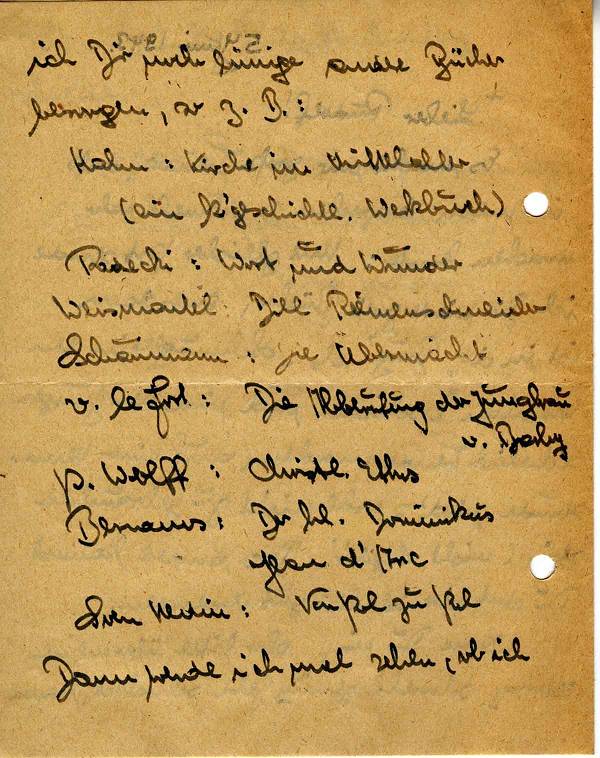 ich Dir noch einige andere Bücher
besorgen, so z. B.:
Hahn: Kirche im Mittelalter
(ein k'geschichtl. Werkbuch)
Radecki: Wort und Wunder
Weismantel: Dill Riemenschneider
Schaumann: Die Übermacht
v. le Fort: Die Abberufung der Jungfrau
v. Barby
P. Wolff: Christl. Ethos
Bernanos: Der hl. Dominikus
Jean d'Arc
Sven Hedin: Von Pol zu Pol
Dann werde ich mal sehen, ob ich